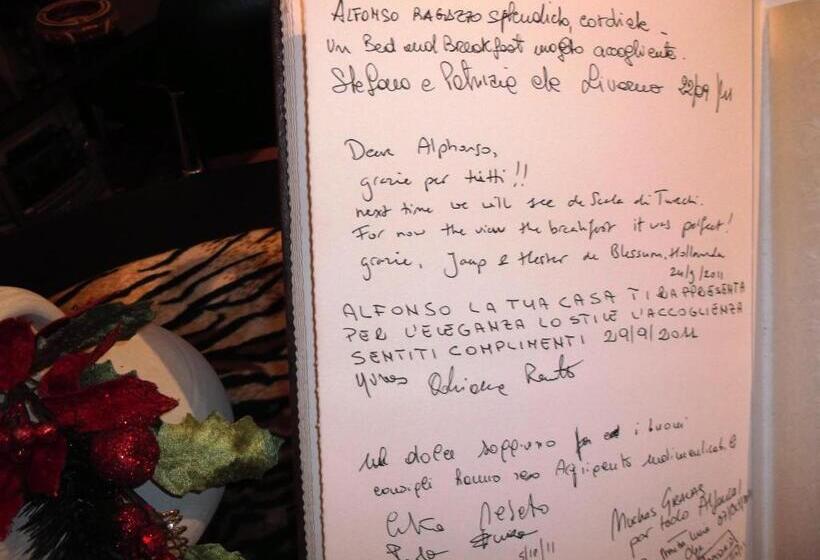 ALFONSO RAGAZZO splendido, cordiale -
un Bed and Breakfast molto accogliente.
Stefano e Patrizia da Livorno 22/09/11
Dear Alphonso,
grazie per tutti!!
next time we will see de Scala di Turchi.
For now the view the breakfast it was perfect!
grazie, Jaap & Hester de Blessum, Hollanda
24/9/2011
ALFONSO LA TUA CASA TI RAPPRESENTA
PER L'ELEGANZA LO STILE L'ACCOGLIENZA
SENTITI COMPLIMENTI 29/9/2011
Adriana Renato
Un dolce soggiorno i buoni
consigli hanno reso Agrigento indimenticabile
5/10/11
Muchas GRACIAS
por todo Alfonso!